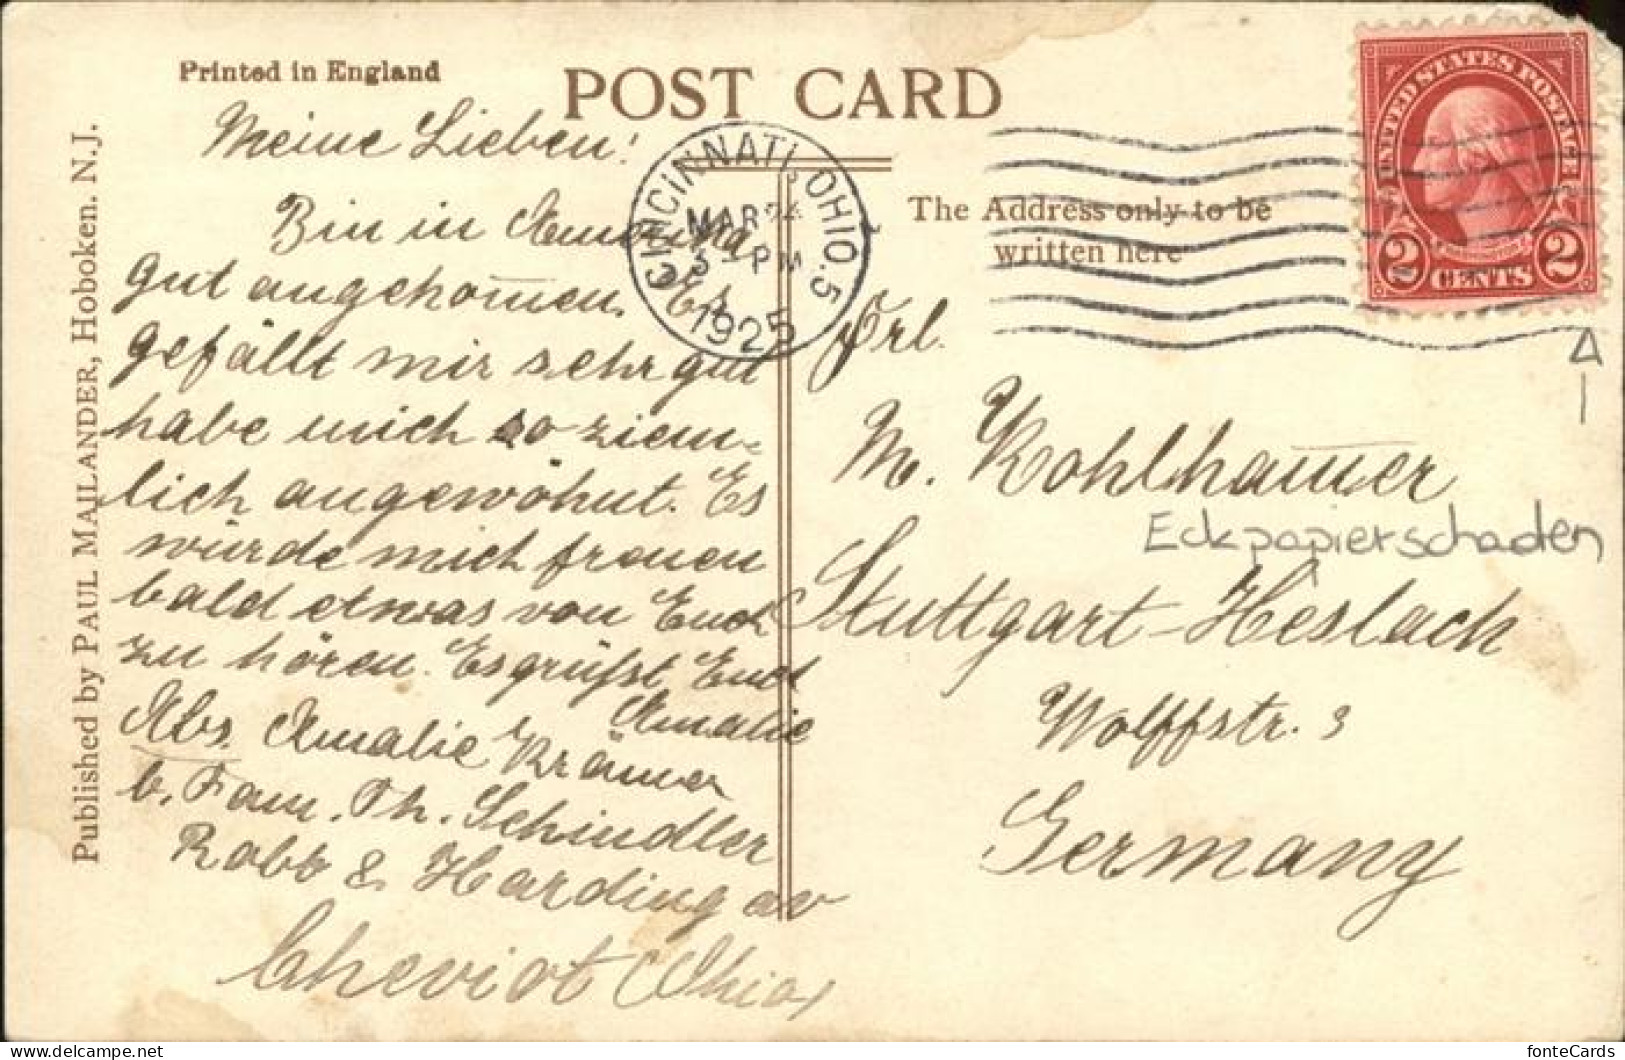 Printed in England
POST CARD
Published by PAUL MAILANDER, Hoboken. N.J.
Meine Lieben!
Bin in Amerika
gut angekom̄en. Es
gefällt mir sehr gut
habe mich so ziem-
lich angewöhnt. Es
würde mich freuen
bald etwas von Euch
zu hören. Es grüsst Euch
Amalie
Abs. Amalie Krämer
b. Fam. Th. Schindler
Robb & Harding av
Cheviot Ohio
CINCINNATI, OHIO. 5
MAR 24
3 PM
1925
UNITED STATES POSTAGE
2 CENTS 2
The Address only to be
written here
Frl.
M. Kohlham̄er
Eckpapierschaden
Stuttgart-Heslach
Wolffstr. 3
Germany
fonteCards